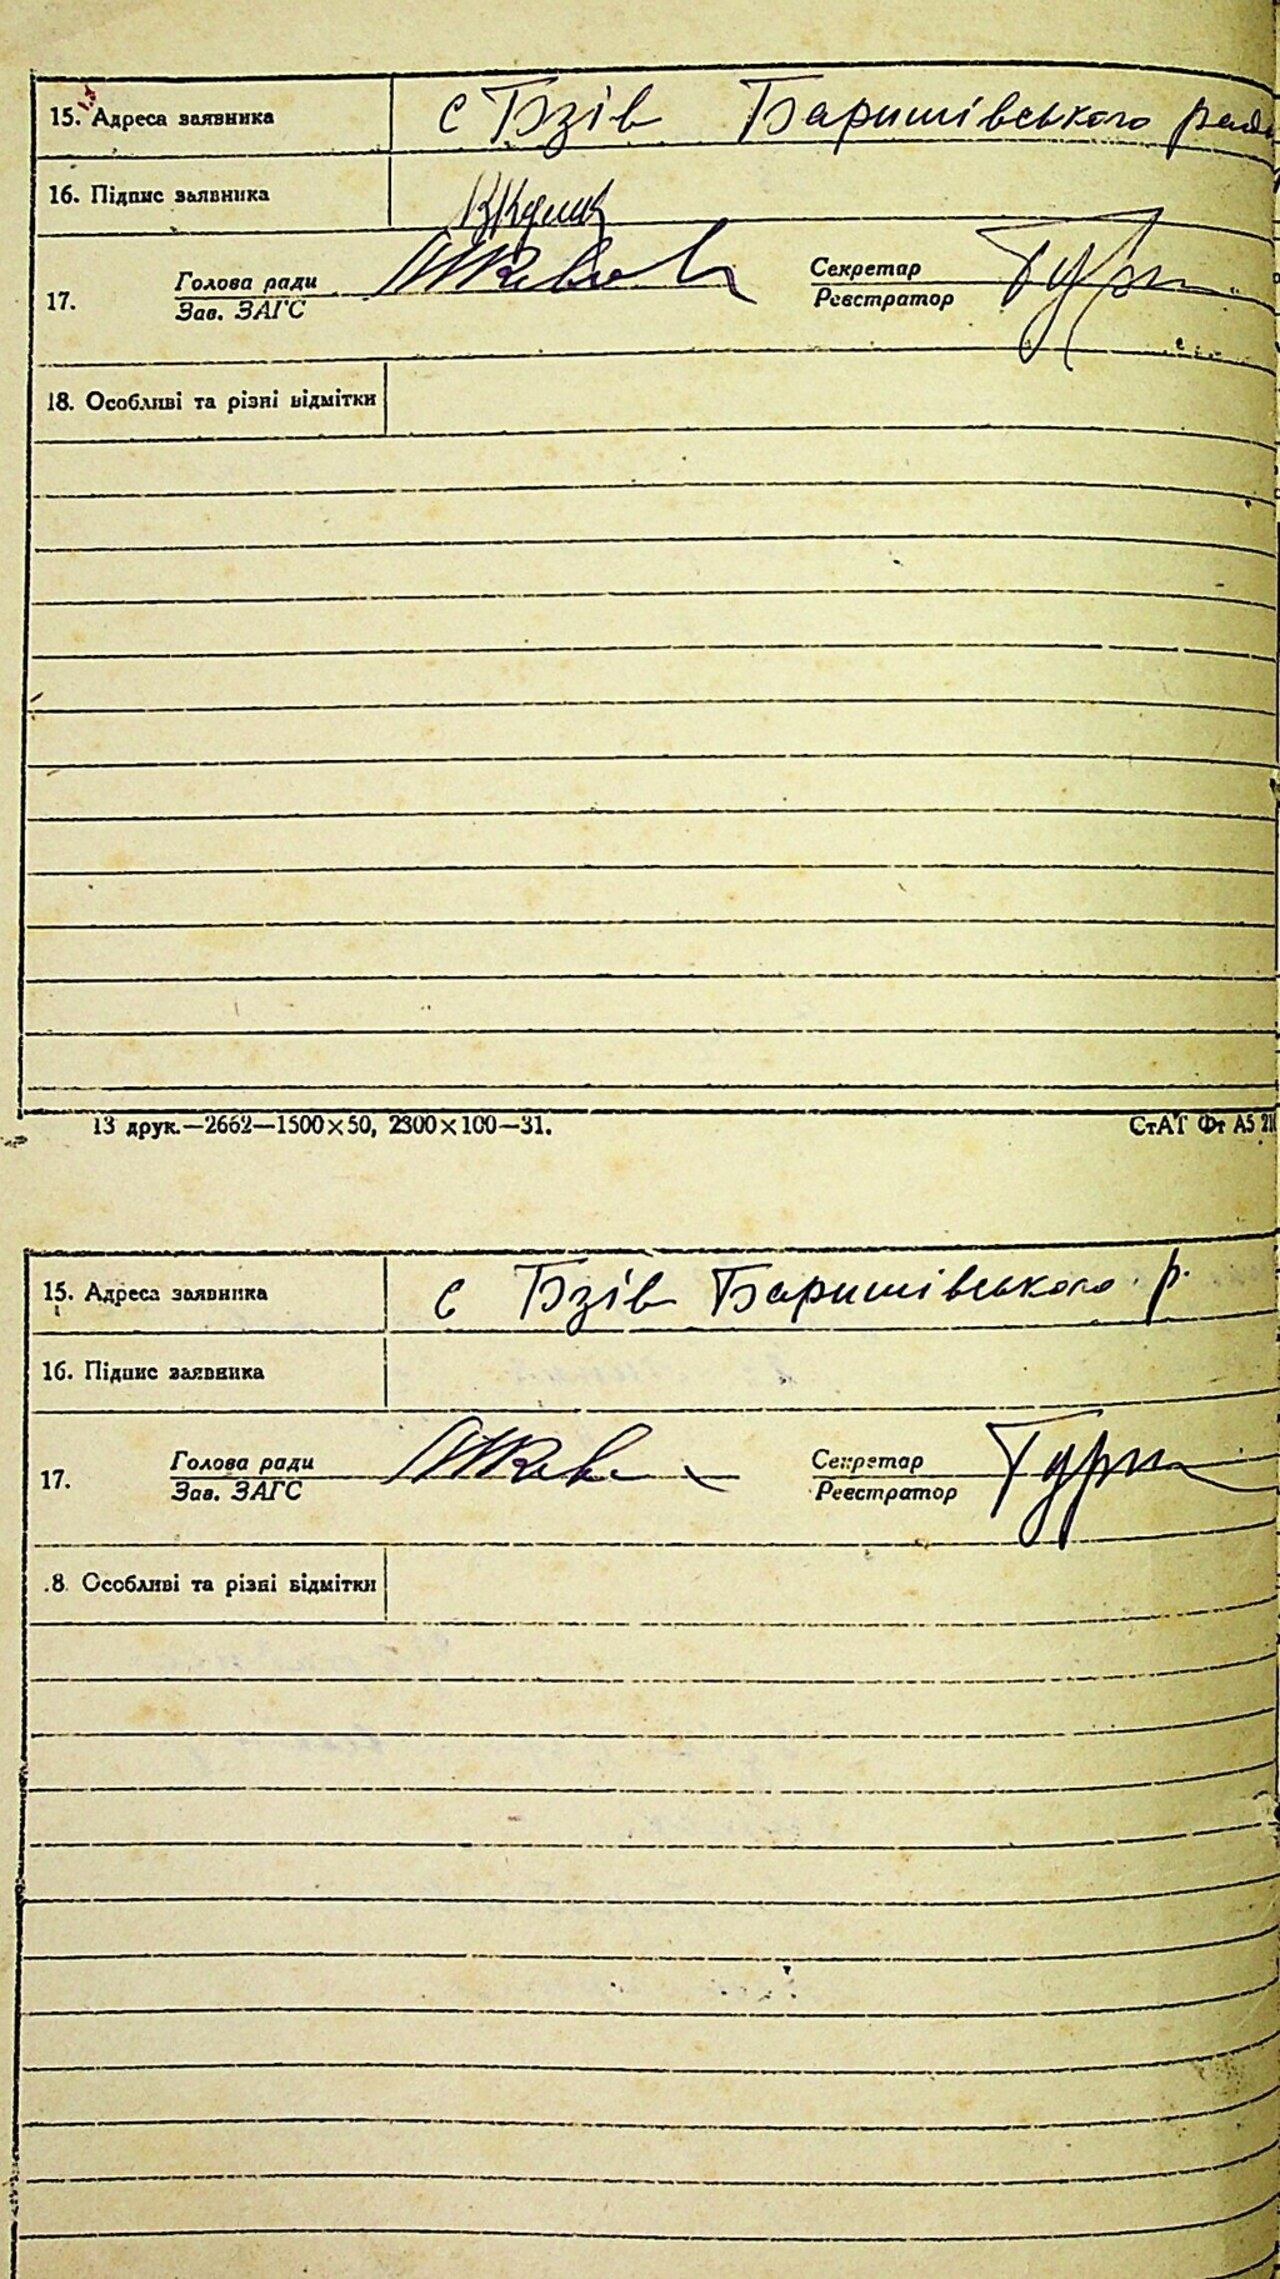 15. Адреса заявника с Бзів Баришівського
16. Підпис заявника
17. Голова ради Секретар
Зав. ЗАГС Реєстратор
18. Особливі та різні відмітки
13 друк.—2662—1500×50, 2300×100—31. СтАТ Фт А5
15. Адреса заявника с Бзів Баришівського р.
16. Підпис заявника
17. Голова ради Секретар
Зав. ЗАГС Реєстратор
8. Особливі та різні відмітки